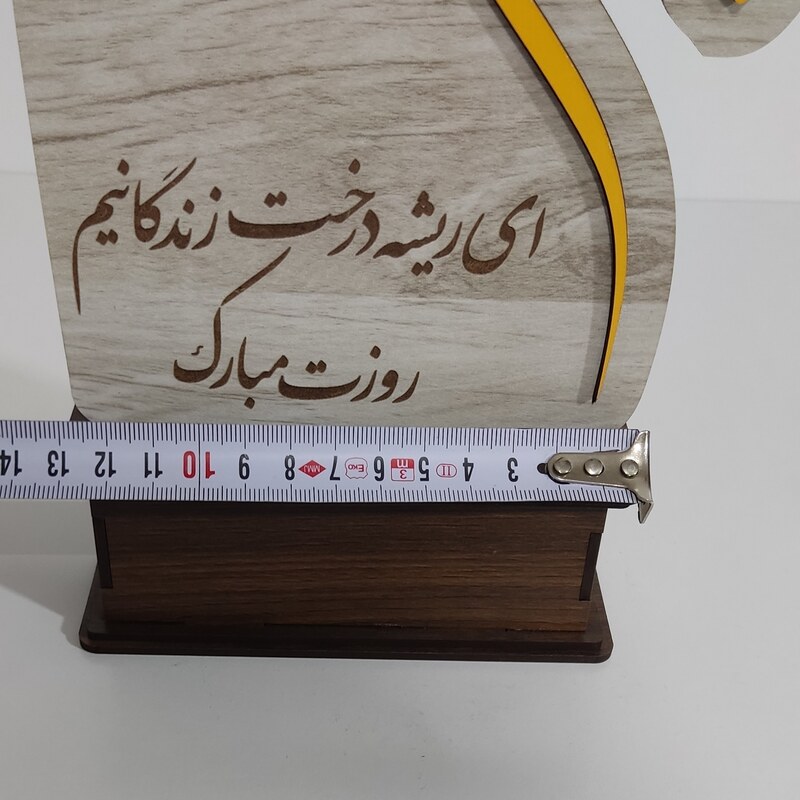 ای ریشه درخت زندگانیم
روزت مبارک
3 4 II 5 3m 6 EKO 7 MMJ 8 9 10 11 12 13 14